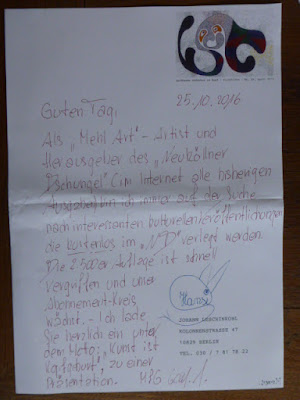 Guten Tag,
25.10.2016
Als „Mehl Art"-Artist und
Herausgeber des „Neuköllner
Dschungel" (im Internet alle bisherigen
Ausgaben) bin ich immer auf der Suche
nach interessanten kulturellen
die kostenlos im „ND" verlegt werden.
Die 2.500er Auflage ist schnell
vergriffen und unser
Abonnement-Kreis
wächst. - Ich lade
Sie herzlich ein unter
dem Moto: „Kunst ist
", zu einer
Präsentation. MfG
Hansi
JOHANN
KOLONNENSTRASSE 47
BERLIN
TEL. 030 / 7 81 78 03